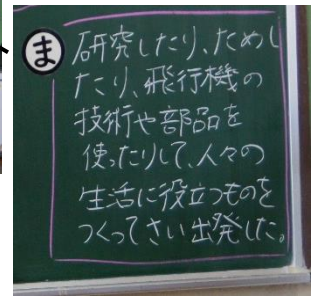 ま
研究したり、ためし
たり、飛行機の
技術や部品を
使ったりして、人々の
生活に役立つものを
つくってさい出発した。